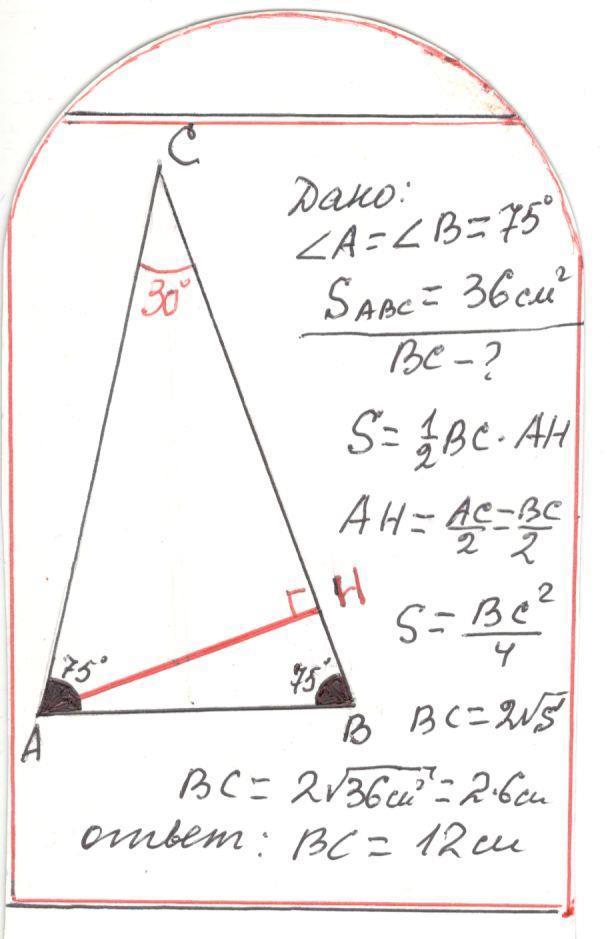 C
30°
Дано:
∠A = ∠B = 75°
S ABC = 36 см²
BC - ?
S = 1/2 BC · AH
AH = AC/2 = BC/2
H
S = BC²/4
75°
75°
A
B
BC = 2√S
BC = 2√36см² = 2·6см
ответ: BC = 12 см